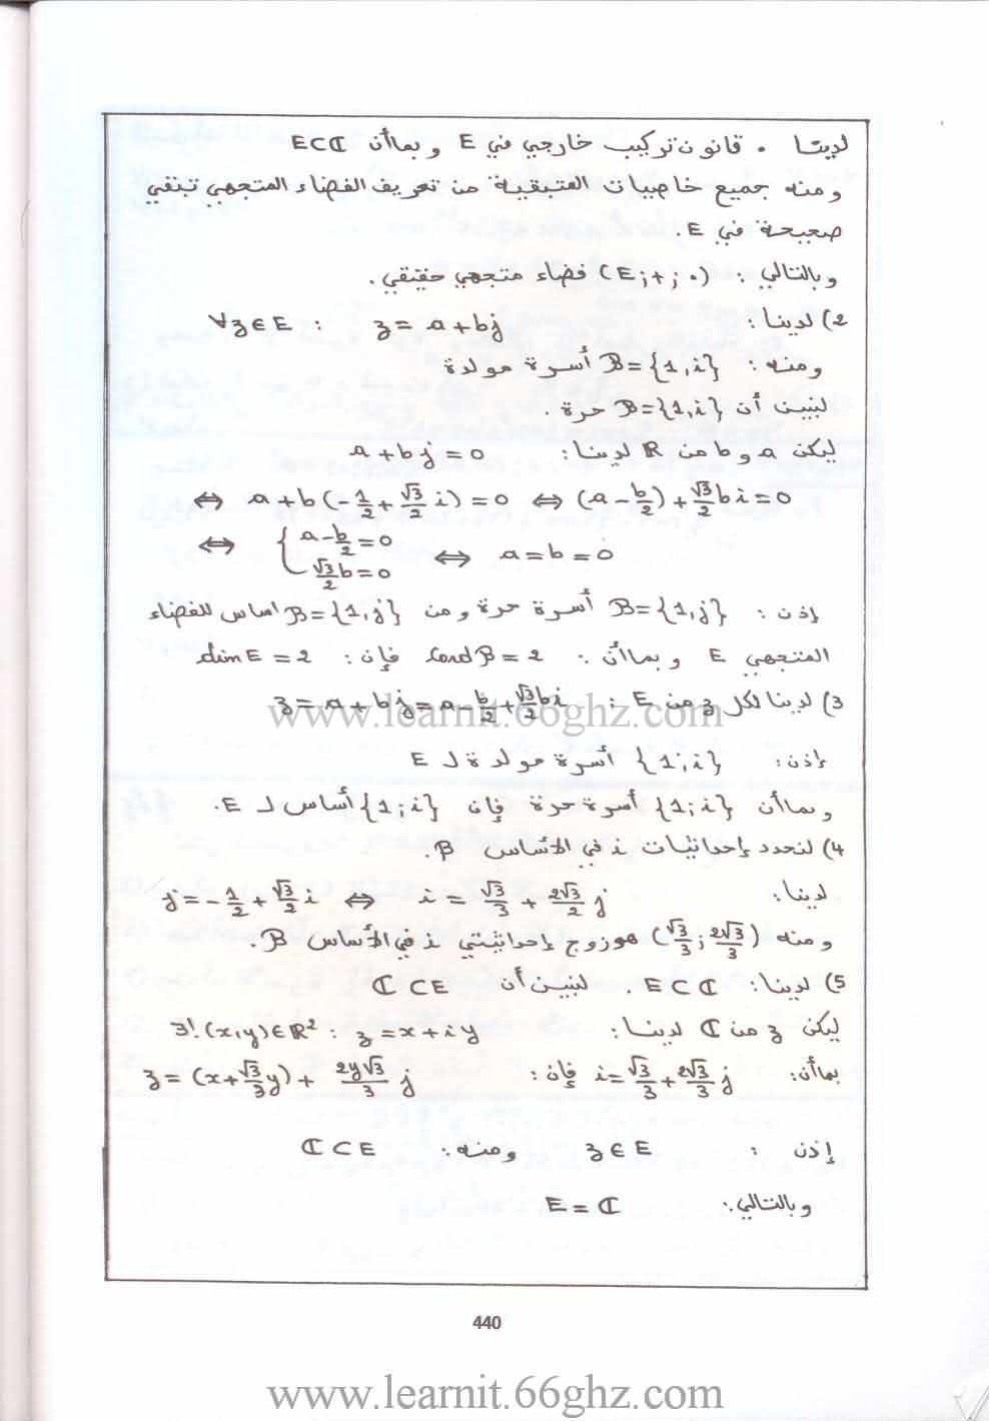 لدينا • قانون تركيب خارجي في E و بما أن E⊂ℂ
ومنه جميع خاصيات المتبقية من تعريف الفضاء المتجهي تبقى
صحيحة في E.
وبالتالي : (E;+;•) فضاء متجهي حقيقي.
2) لدينا: ∀z∈E : z = a+bj
ومنه : B={1,i} أسرة مولدة
لنبين أن B={1,i} حرة .
ليكن a و b من ℝ لدينا: a+bj=0
⇔ a+b(-1/2+√3/2 i)=0 ⇔ (a-b/2)+√3/2 bi=0
⇔ { a-b/2=0 ; √3/2 b=0 ⇔ a=b=0
إذن : B={1,j} أسرة حرة ومن B={1,j} أساس للفضاء
المتجهي E وبما أن : Card B=2 فإن : dim E=2
3) لدينا لكل z من E : z=a+bj=a-b/2+√3/2 bi
www.learnit.66ghz.com
إذن: {1;i} أسرة مولدة ل E
وبما أن {1;i} أسرة حرة فإن {1;i} أساس ل E.
4) لنحدد إحداثيات i في الأساس B.
لدينا: j=-1/2+√3/2 i ⇔ i=√3/3+2√3/2 j
ومنه (√3/3;2√3/3) هو زوج إحداثيتي i في الأساس B.
5) لدينا: E⊂ℂ . لنبين أن ℂ⊂E
ليكن z من ℂ لدينا: ∃!(x,y)∈ℝ² : z=x+iy
بما أن: i=√3/3+2√3/3 j فإن : z=(x+√3/3 y)+2y√3/3 j
إذن : z∈E ومنه: ℂ⊂E
وبالتالي: E=ℂ
440
www.learnit.66ghz.com